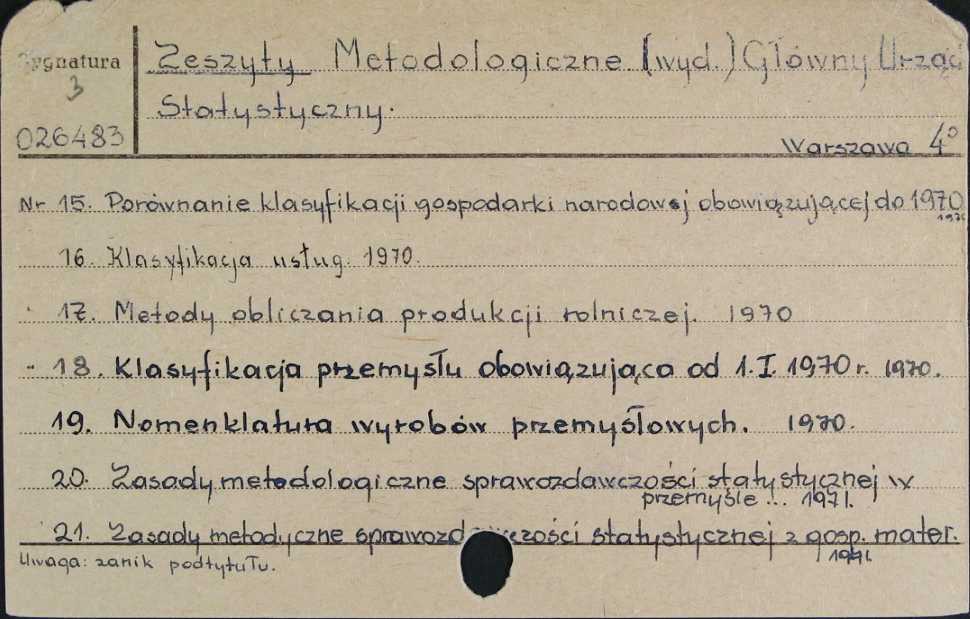 Sygnatura
3
026483
Zeszyty Metodologiczne (wyd.) Główny Urząd
Statystyczny.
Warszawa 4°
Nr 15. Porównanie klasyfikacji gospodarki narodowej obowiązującej do 1970
1970
16. Klasyfikacja usług. 1970.
17. Metody obliczania produkcji rolniczej. 1970
18. Klasyfikacja przemysłu obowiązująca od 1.I.1970 r. 1970.
19. Nomenklatura wyrobów przemysłowych. 1970.
20. Zasady metodologiczne sprawozdawczości statystycznej w
przemyśle... 1971.
21. Zasady metodyczne sprawozdawczości statystycznej z gosp. mater.
1971.
Uwaga: zanik podtytułu.